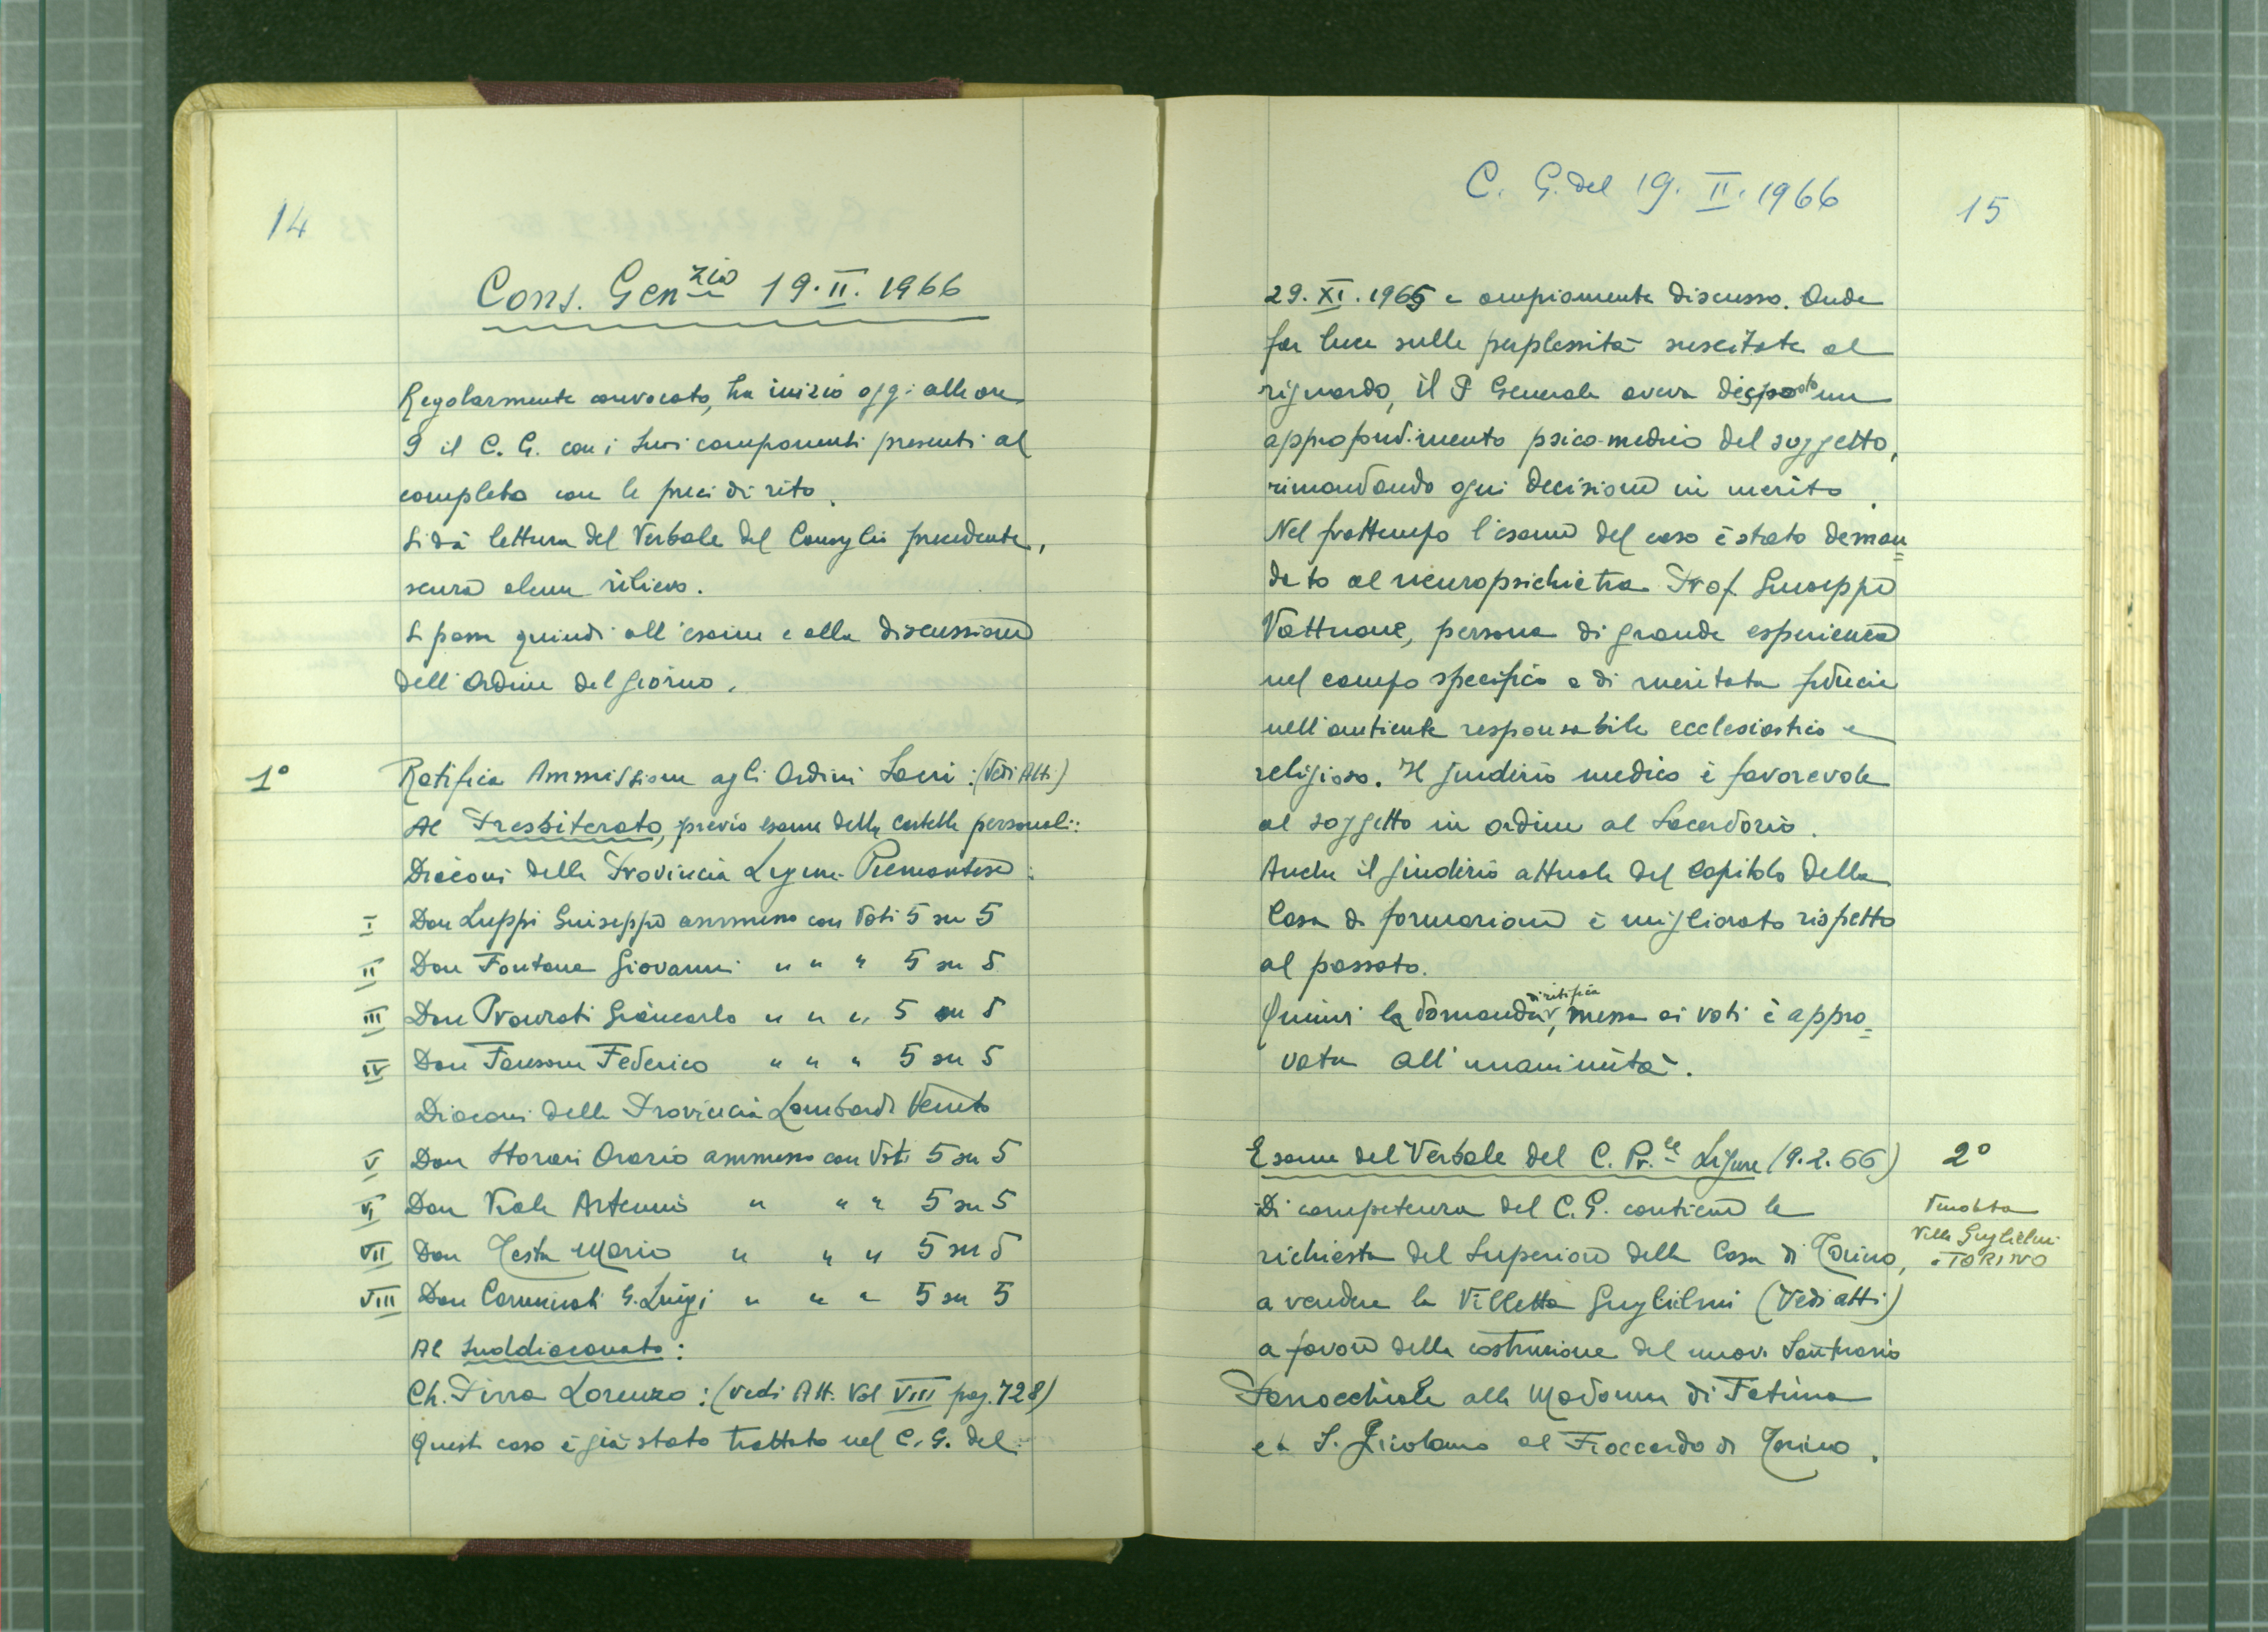 14
Cons. Gen.zio 19.II.1966
Regolarmente convocato, ha inizio oggi alle ore
9 il C. G. con i suoi componenti presenti al
completo con le preci di rito.
Si dà lettura del Verbale del Consiglio precedente,
senza alcun rilievo.
Si passa quindi all'esame e alla discussione
dell'Ordine del giorno.
1° Ratifica Ammissione agli Ordini Sacri: (Vedi Atti)
Al Presbiterato, previo esame delle cartelle personali:
Diaconi della Provincia Ligure-Piemontese:
I Don Luppi Giuseppe ammesso con Voti 5 su 5
II Don Fontana Giovanni " " " 5 su 5
III Don Giancarlo " " " 5 su 5
IV Don Federico " " " 5 su 5
Diaconi della Provincia Lombardo Veneto
V Don Orazio ammesso con Voti 5 su 5
VI Don Viale Artemio " " " 5 su 5
VII Don Testa Mario " " " 5 su 5
VIII Don G. Luigi " " " 5 su 5
Al Suddiaconato:
Ch. Pirra Lorenzo: (vedi Att. Vol VIII pag. 728)
Questo caso è già stato trattato nel C. G. del
C. G. del 19.II.1966
15
29.XI.1965 e ampiamente discusso. Onde
far luce sulle perplessità suscitate al
riguardo, il P Generale aveva disposto un
approfondimento psico-medico del soggetto,
rimandando ogni decisione in merito.
Nel frattempo l'esame del caso è stato deman=
dato al neuropsichiatra Prof. Giuseppe
Vattuone, persona di grande esperienza
nel campo specifico e di meritata fiducia
nell'ambiente responsabile ecclesiastico e
religioso. Il giudizio medico è favorevole
al soggetto in ordine al Sacerdozio.
Anche il giudizio attuale del Capitolo della
Casa di formazione è migliorato rispetto
al passato.
Quindi la domanda di ratifica, messa ai voti è appro=
vata all'unanimità.
Esame del Verbale del C. Pr.le Ligure (9.2.66) 2°
Di competenza del C.G. contiene la
richiesta del Superiore della Casa di Torino,
a vendere la Villetta Guglielmi (Vedi atti)
a favore della costruzione del nuovo Santuario
Parrocchiale alla Madonna di Fatima
e a S. Girolamo al Fioccardo di Torino.
Vendita
Villa Guglielmi
a TORINO